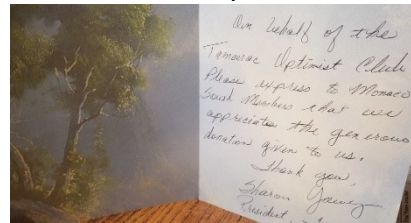 On behalf of the
Tamarac Optimist Club
Please express to Monaco
that we
appreciate the generous
donation given to us.
Thank you,
Sharon
President